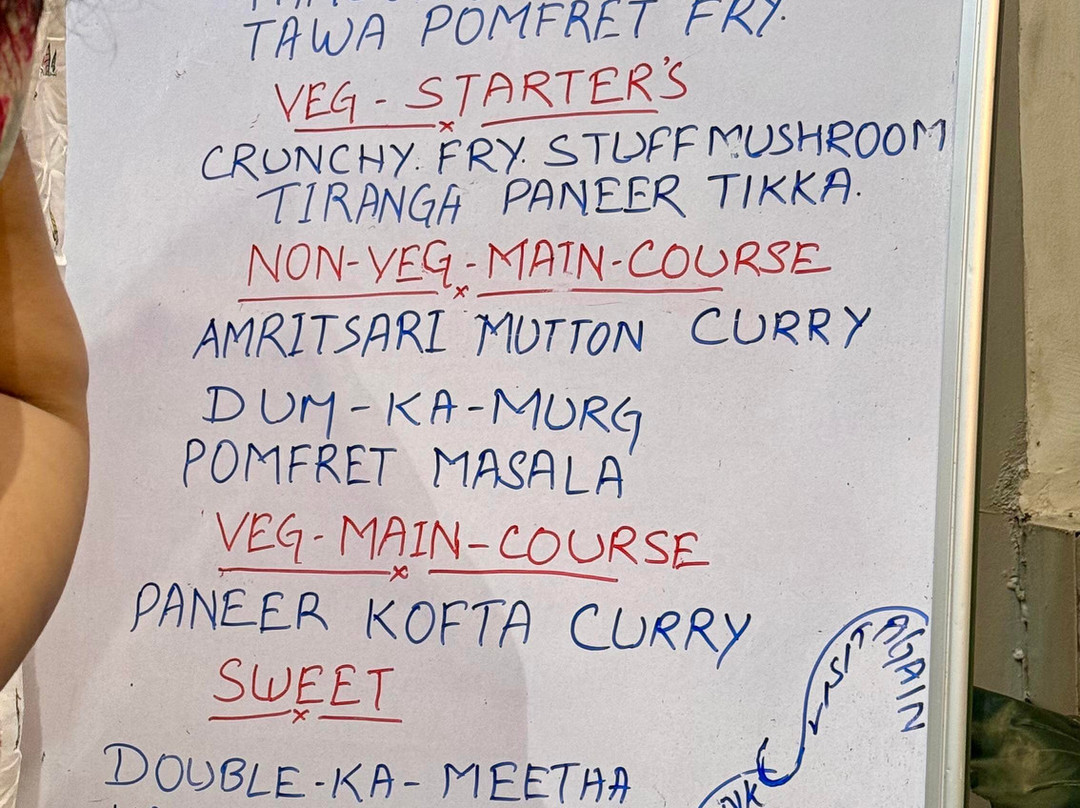 TAWA POMFRET FRY.
VEG - STARTER'S
CRUNCHY. FRY. STUFF MUSHROOM
TIRANGA PANEER TIKKA.
NON-VEG - MAIN-COURSE
AMRITSARI MUTTON CURRY
DUM-KA-MURG
POMFRET MASALA
VEG-MAIN-COURSE
PANEER KOFTA CURRY
SWEET
DOUBLE-KA-MEETHA
VISIT AGAIN